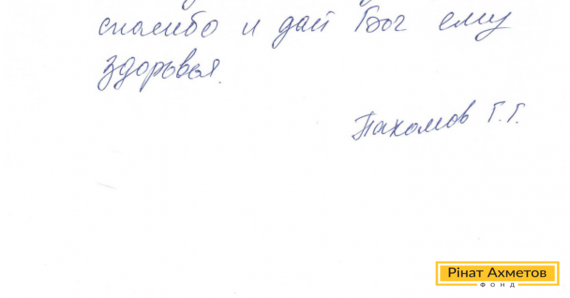 спасибо и дай Бог ему
здоровья.
Пахомов Г.Г.
Рінат Ахметов
ФОНД